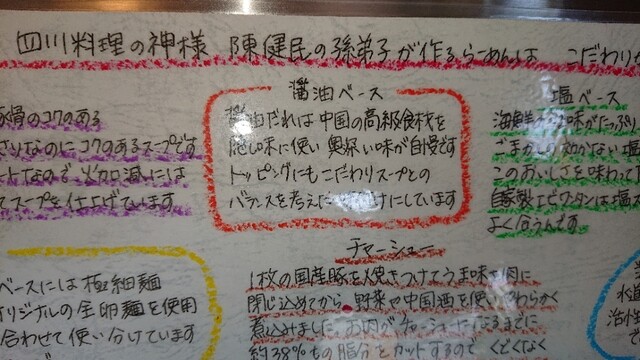 四川料理の神様 陳健民の孫弟子が作るらーめんは こだわりが
豚骨のコクのある
さりなのにコクのあるスープです
ートなので、火力加減には
てスープを仕上げています
醤油ベース
醤油だれは中国の高級食材を
隠し味に使い 奥深い味が自慢です
トッピングにもこだわりスープとの
バランスを考えた
けにしています
塩ベース
海鮮
味がたっぷり
ごまかしの効かない塩
このおいしさを味わって
自家製エビワンタンは塩ス
よく合うんです
ベースには極細麺
リジナルの全卵麺を使用
合わせて使い分けています
チャーシュー
1枚の国産豚を焼きつけてうま味を肉に
閉じ込めてから、野菜や中国酒を使いやわらかく
煮込みました。お肉がチャーシューになるまでに
約38%もの脂分をカットするので くどくなく
水
活性